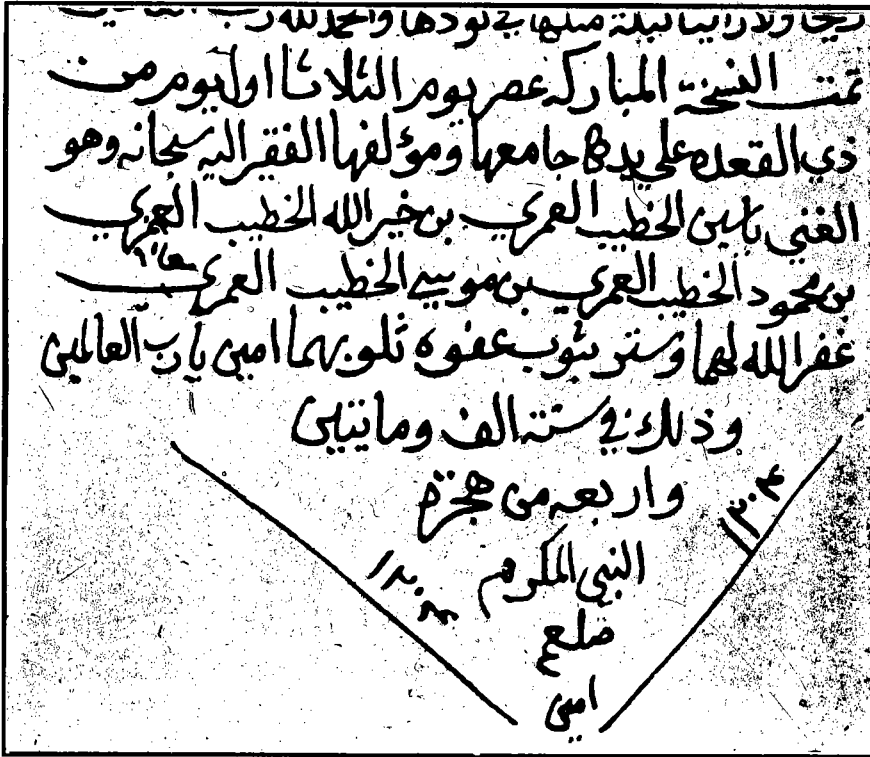 ريحا ولا راينا ليلة مثلها في نودها والحمد لله رب
تمت النسخة المباركه عصر يوم الثلاثا اول يوم من
ذي القعده علي يد جامعها ومؤلفها الفقير اليه سبحانه وهو
الغني ياسين الخطيب العمري بن خير الله الخطيب العمري
بن محمود الخطيب العمري بن موسي الخطيب العمري
غفر الله لهما وستر بثوب عفوه ذلوبهما امين يا رب العالمين
وذلك في سنة الف وماتيين
واربعه من هجرة
النبي المكرم
صلعم
امين
١٢٠٤
١٢٠٤